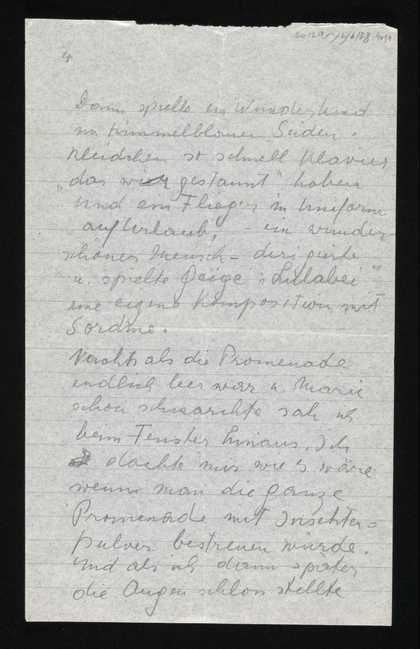 4
Dann spielte ein Wunderkind
im himmelblauen Seiden-
kleidchen so schnell Klavier
„das wir gestaunt“ haben
und ein Flieger in Uniform
auf Urlaub, – ein wunder-
schöner Mensch – dirigierte
u. spielte Geige: „Lulabei“ –
eine eigene Komposition mit
Sordine.
Nachts als die Promenade
endlich leer war u. Marie
schon schnarchte sah ich
beim Fenster hinaus. Ich
dachte mir wie's wäre
wenn man die ganze
Promenade mit Insekten=
pulver bestreuen würde.
Und als ich dann später
die Augen schloss stellte